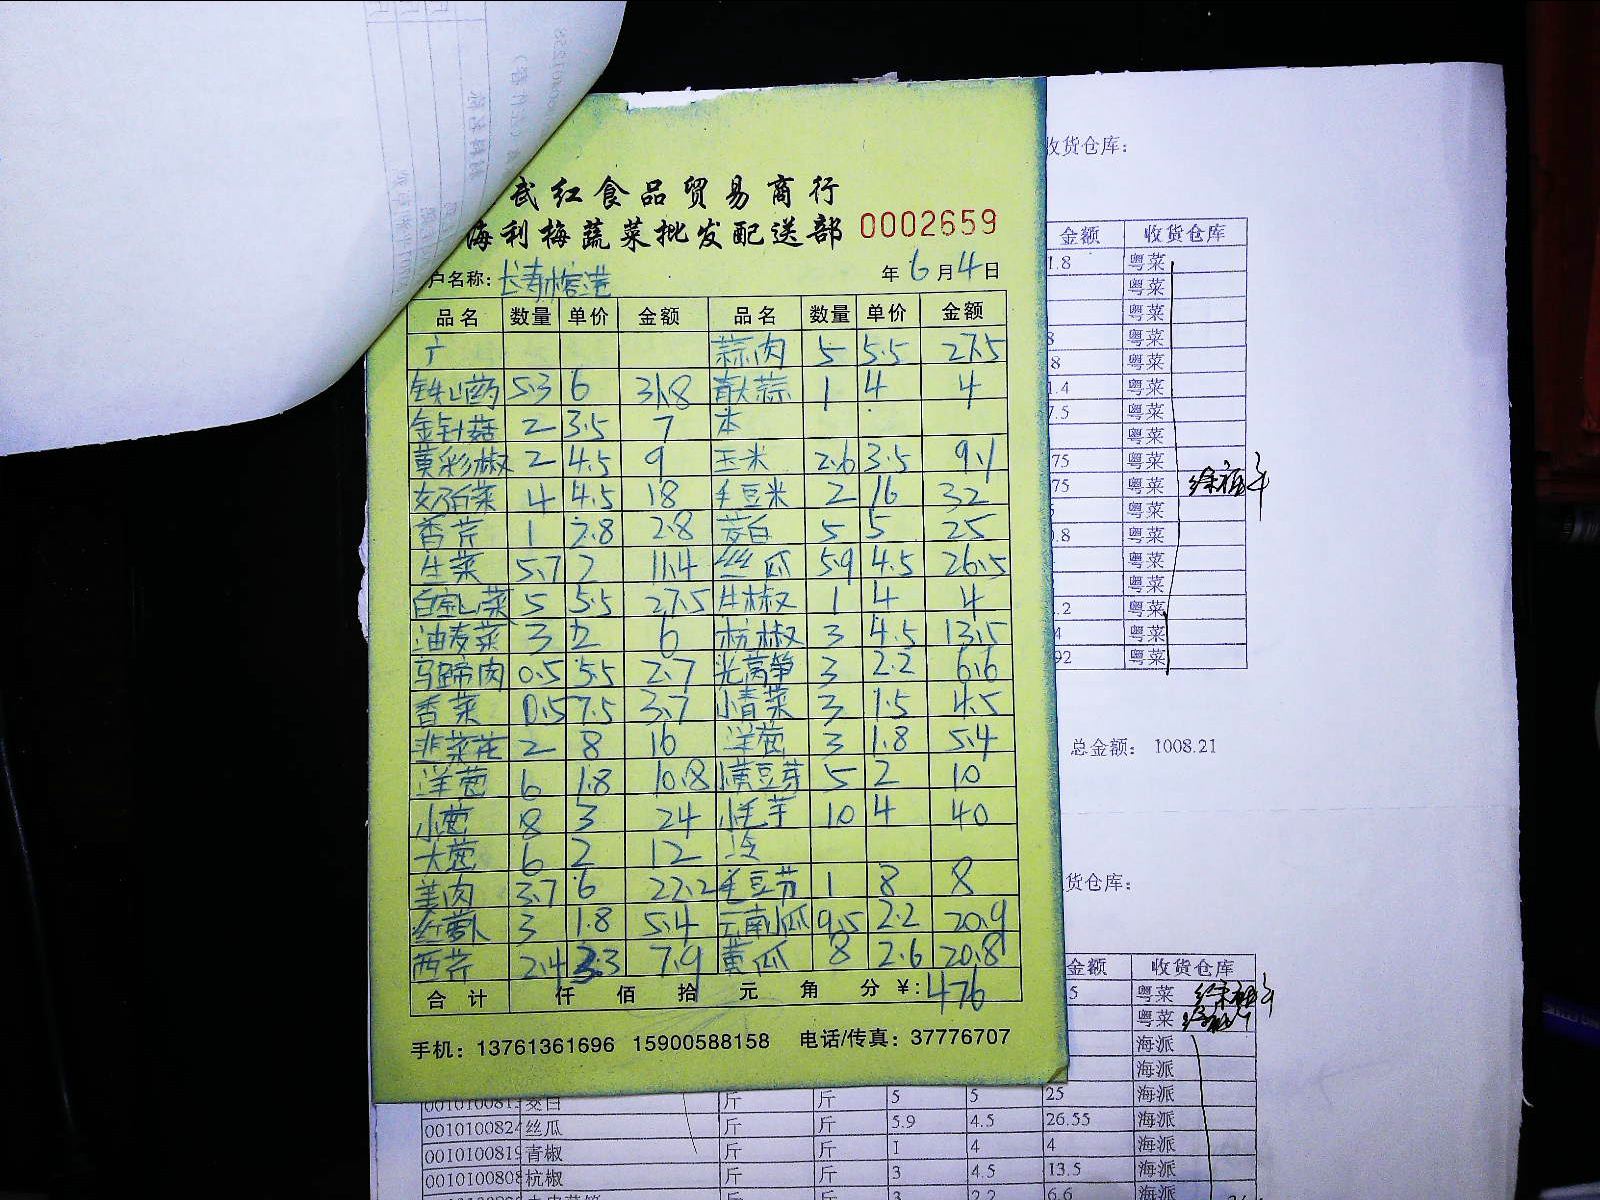 武红食品贸易商行
海利梅蔬菜批发配送部 0002659
户名称: 长寿 年6月4日
品名 数量 单价 金额 品名 数量 单价 金额
广 蒜肉 5 5.5 27.5
铁山药 5.3 6 31.8 青大蒜 1 4 4
金针菇 2 3.5 7 本
黄彩椒 2 4.5 9 玉米 2.6 3.5 9.1
奶白菜 4 4.5 18 毛豆米 2 16 32
香芹 1 2.8 2.8 茭白 5 5 25
生菜 5.7 2 11.4 丝瓜 5.9 4.5 26.5
白 菜 5 5.5 27.5 椒 1 4 4
油麦菜 3 2 6 杭椒 3 4.5 13.5
马蹄肉 0.5 5.5 2.7 光莴笋 3 2.2 6.6
香菜 0.5 7.5 3.7 小青菜 3 1.5 4.5
韭菜花 2 8 16 洋葱 3 1.8 5.4
洋葱 6 1.8 10.8 黄豆芽 5 2 10
小葱 8 3 24 小毛芋 10 4 40
大葱 6 2 12 冷
姜肉 3.7 6 22.2 毛豆节 1 8 8
红萝卜 3 1.8 5.4 云南小瓜 9.5 2.2 20.9
西芹 2.4 3.3 7.9 黄瓜 8 2.6 20.8
合计 仟 佰 拾 元 角 分 ¥: 476
手机: 13761361696 15900588158 电话/传真: 37776707
收货仓库:
金额 收货仓库
1.8 粤菜
粤菜
粤菜
8 粤菜
8 粤菜
1.4 粤菜
7.5 粤菜
粤菜
75 粤菜
75 粤菜
粤菜
0.8 粤菜
粤菜
粤菜
.2 粤菜
4 粤菜
92 粤菜
总金额: 1008.21
货仓库:
金额 收货仓库
5 粤菜
粤菜
海派
海派
茭白 斤 斤 5 5 25 海派
0010100824 丝瓜 斤 斤 5.9 4.5 26.55 海派
0010100819 青椒 斤 斤 1 4 4 海派
0010100808 杭椒 斤 斤 3 4.5 13.5 海派
斤 斤 3 2.2 6.6 海派